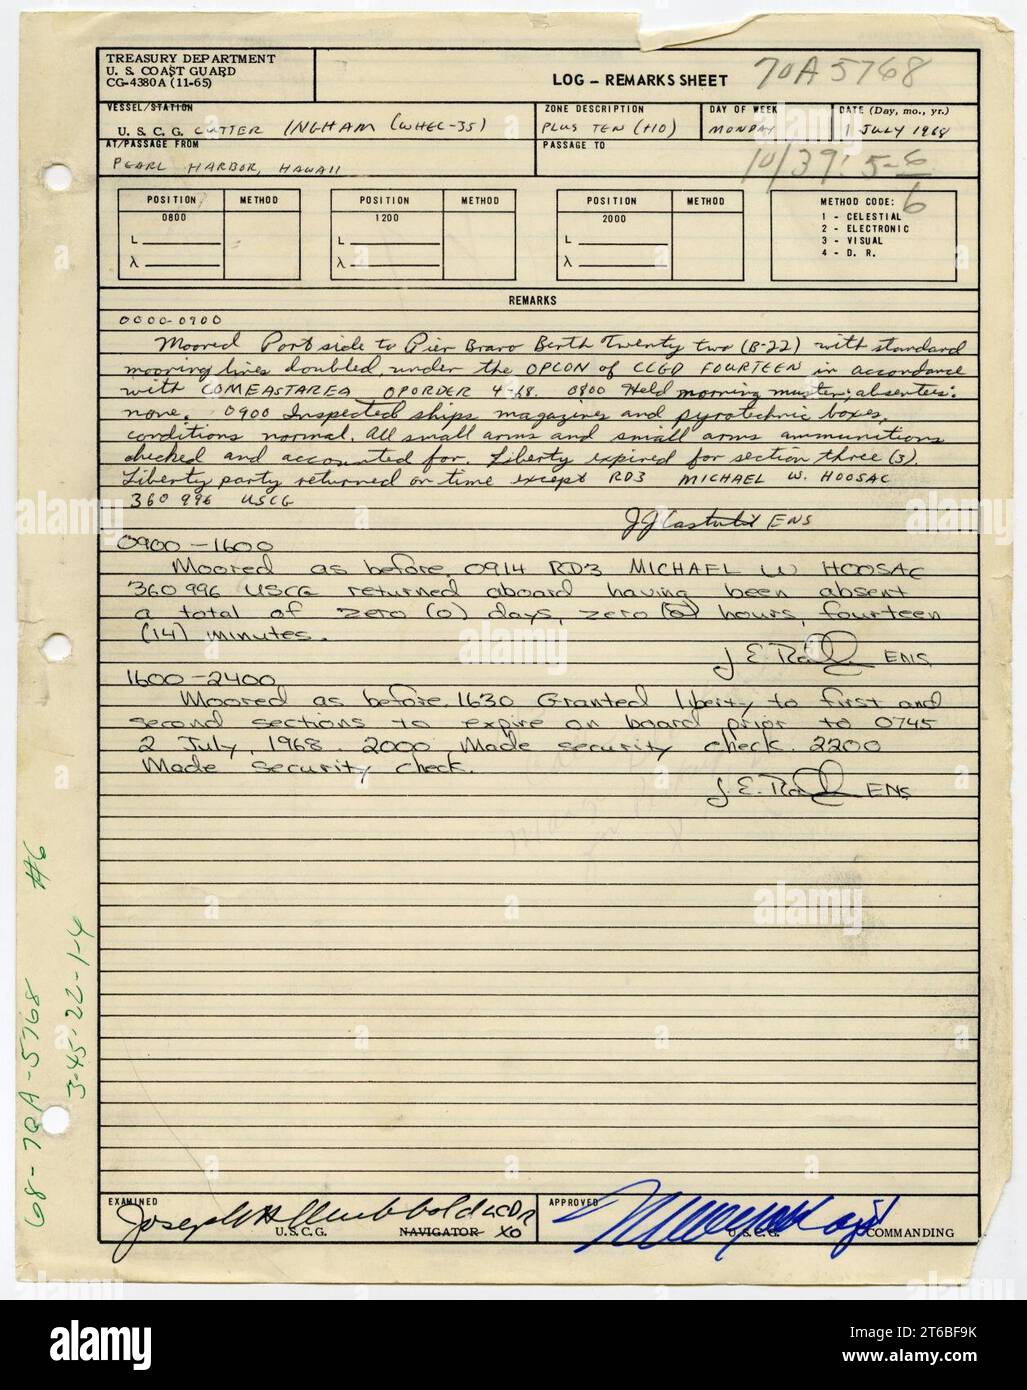 TREASURY DEPARTMENT
U. S. COAST GUARD
CG-4380A (11-65)
LOG – REMARKS SHEET
70A5768
VESSEL/STATION
U. S. C. G. CUTTER INGHAM (WHEC-35)
ZONE DESCRIPTION
PLUS TEN (+10)
DAY OF WEEK
MONDAY
DATE (Day, mo., yr.)
1 JULY 1968
AT/PASSAGE FROM
PEARL HARBOR, HAWAII
PASSAGE TO
10/39: 5-6
6
POSITION METHOD
0800
L
λ
POSITION METHOD
1200
L
λ
POSITION METHOD
2000
L
λ
METHOD CODE:
1 - CELESTIAL
2 - ELECTRONIC
3 - VISUAL
4 - D. R.
REMARKS
0000-0900
Moored Port side to Pier Bravo Berth Twenty two (B-22) with standard
mooring lines doubled, under the OPCON of CCGD FOURTEEN in accordance
with COMEASTAREA OPORDER 4-68. 0800 Held morning muster; absentees:
none. 0900 Inspected ships magazines and pyrotechnic boxes,
conditions normal. All small arms and small arms ammunitions
checked and accounted for. Liberty expired for section three (3).
Liberty party returned on time except RD3 MICHAEL W. HOOSAC
360 996 USCG
ENS
0900-1600
Moored as before. 0914 RD3 MICHAEL W HOOSAC
360 996 USCG returned aboard having been absent
a total of zero (0) days, zero (0) hours, fourteen
(14) minutes.
J. E. ENS
1600-2400
Moored as before. 1630 Granted liberty to first and
second sections to expire on board prior to 0745
2 July, 1968. 2000 Made security check. 2200
Made security check.
J. E. ENS
#6
3-45-22-1-4
68-70A-5768
EXAMINED
Joseph H. LCDR
U.S.C.G. NAVIGATOR XO
APPROVED
U.S.C.G. COMMANDING
alamy
Image ID: 2T6BF9K
www.alamy.com